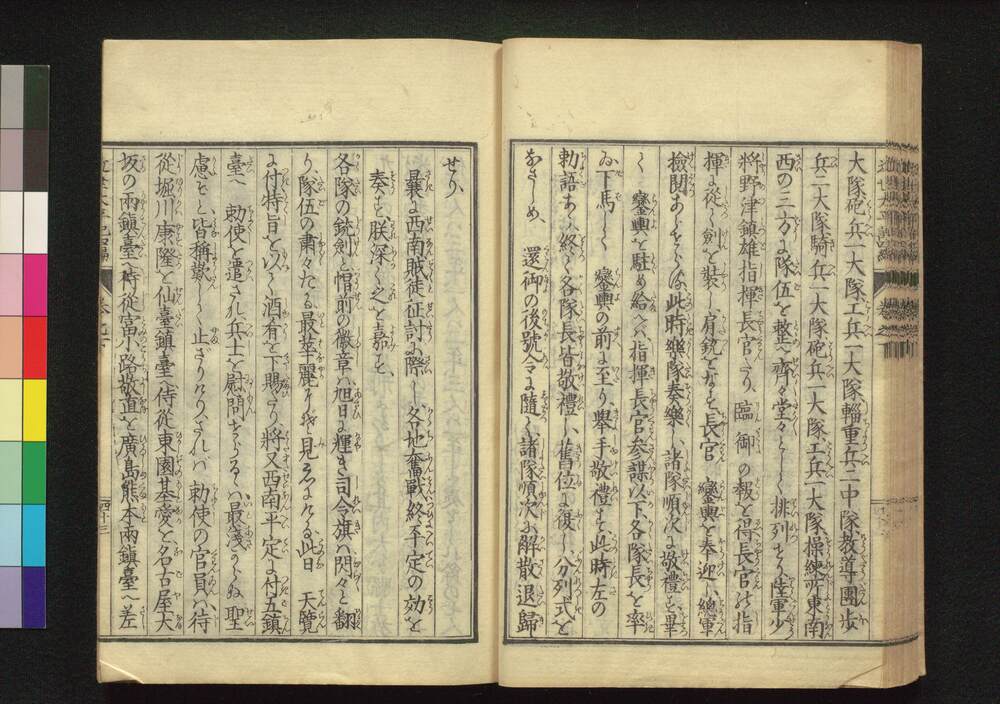 大隊砲兵一大隊工兵一大隊輜重兵二中隊教導團歩
兵二大隊騎兵一大隊砲兵一大隊工兵一大隊操練所東南
西の三方に隊伍を整へ齊々堂々として排列せる陸軍少
將野津鎮雄指揮長官たり 臨御の報を得長官の指
揮に從ひ劍を装し肩銃をなす長官 鑾輿を奉迎し總軍
檢閲あらせらる此時樂隊奏樂し諸隊順次に敬禮す畢
て 鑾輿を駐め給へバ指揮長官参謀以下各隊長を率
ゐ下馬して 鑾輿の前に至り擧手敬禮す此時左の
勅語あり終て各隊長皆敬禮し舊位に復し分列式を
なさしめ 還御の後號令に隨ひ諸隊順次に解散退歸
せり
曩に西南賊徒征討に際し各地奮戰終平定の効を
奏す朕深く之を嘉す
各隊の銃劍と帽前の徽章ハ旭日に輝き司令旗ハ閃々と翻
り隊伍の肅々たる最華麗にぞ見えにける此日 天覽
に付特旨を以て酒肴を下賜さる將又西南平定に付五鎮
臺へ 勅使を遣され兵士を慰問せらるゝハ最淺からぬ聖
慮ぞと皆稱歎して止ざりけりされバ 勅使の官員ハ侍
從堀川康隆を仙臺鎮臺へ侍從東園基愛を名古屋大
坂の兩鎮臺へ侍從富小路敬直を廣島熊本兩鎮臺へ差
四十三